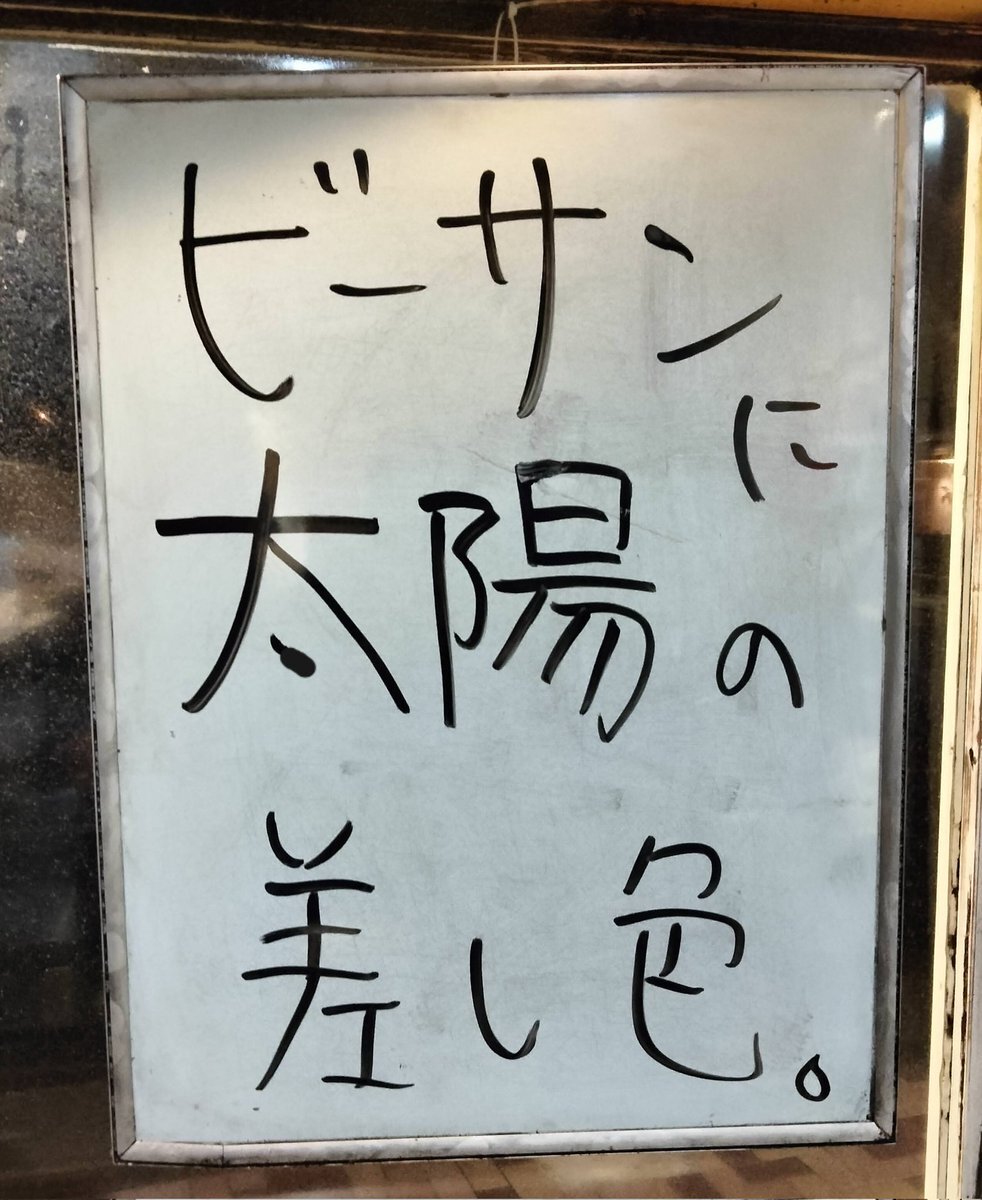 ビーサンに
太陽の
差し色。